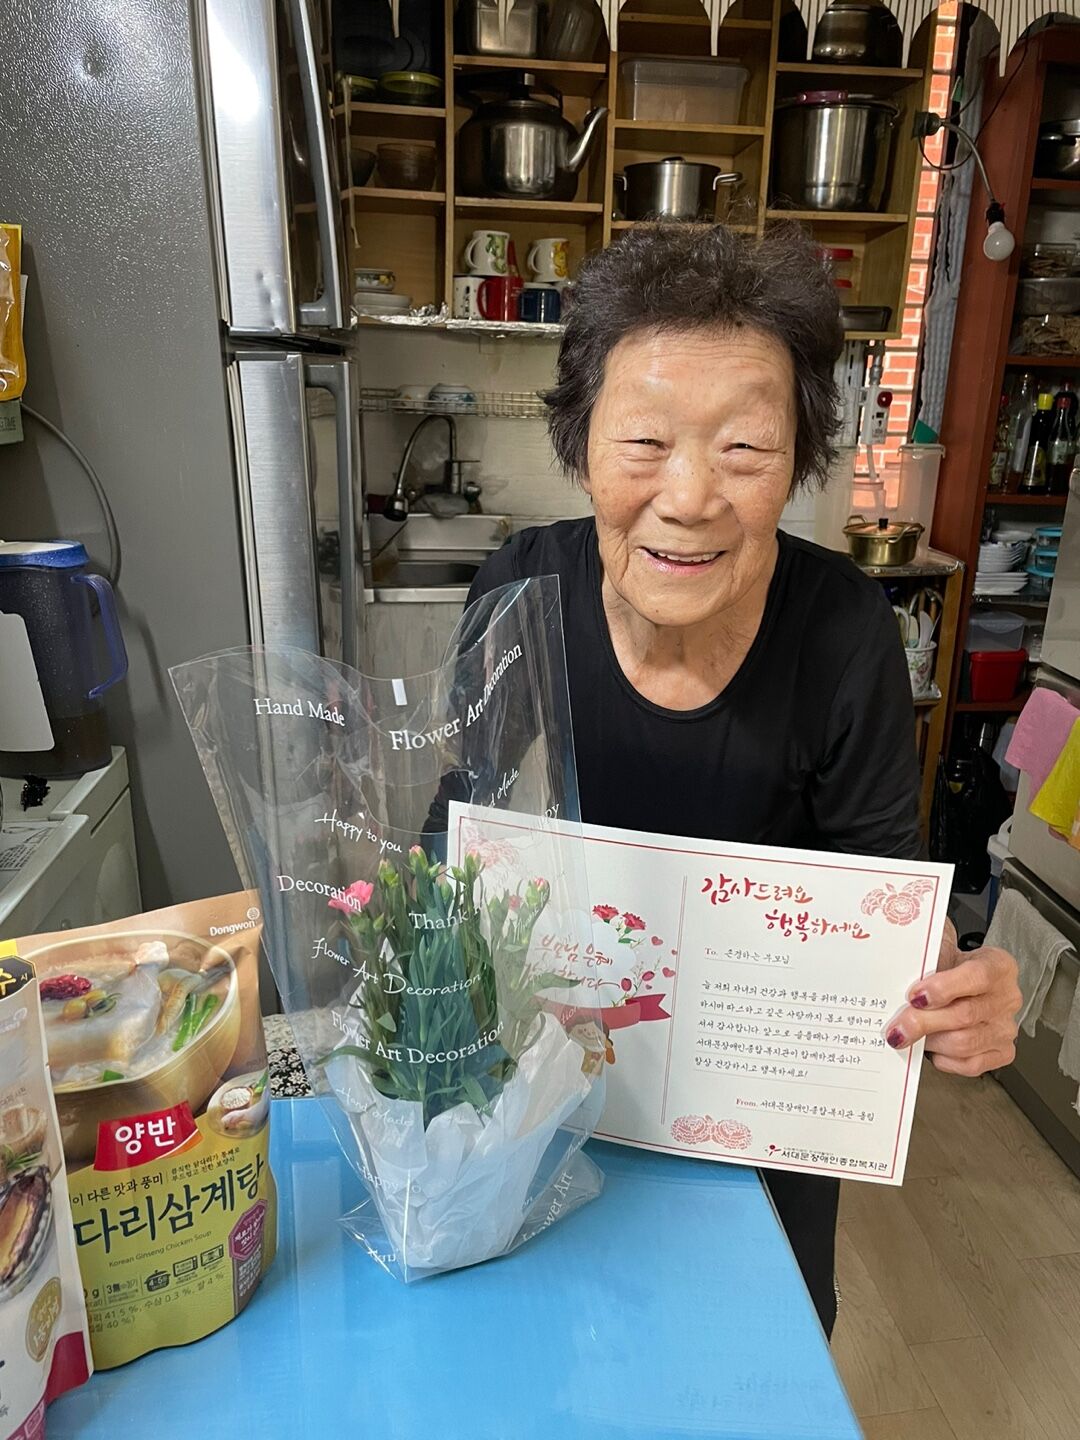 Hand Made
Flower Art Decoration
Happy to you
Decoration
Thank
Flower Art Decoration
Flower Art Decoration
Hand Made
Happy to
Flower Art
부모님 은혜
감사합니다
감사드려요
행복하세요
To. 존경하는 부모님
늘 저희 자녀의 건강과 행복을 위해 자신을 희생
하시며 따스하고 깊은 사랑까지 몸소 행하여 주
셔서 감사합니다. 앞으로 슬플때나 기쁠때나 저희
서대문장애인종합복지관이 함께하겠습니다.
항상 건강하시고 행복하세요!
From. 서대문장애인종합복지관 올림
서대문장애인종합복지관
Dongwon
양반
큼직한 닭다리가 통째로
부드럽고 진한 보양식
이 다른 맛과 풍미
다리삼계탕
Korean Ginseng Chicken Soup
수삼 0.3 %, 쌀 4 %